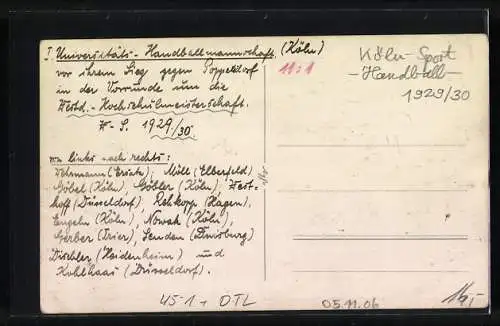 I. Universitäts-Handballmannschaft (Köln)
vor ihrem Sieg gegen Poppelsdorf 11:1
in der Vorrunde um die
Westd.-Hochschulmeisterschaft.
W.-S. 1929/30.
von links nach rechts:
(Erint); Möll (Elberfeld)
Göbel (Köln), Göbler (Köln), West-
hoff (Düsseldorf), Rehkopp (Hagen),
Engeln (Köln), Nowak (Köln),
Gerber (Trier), Senden (Duisburg)
Dischler (Heidenheim) und
Kohlhaas (Düsseldorf).
Köln-Sport
-Handball-
1929/30
45-1+ OTL
05.11.06
14,-